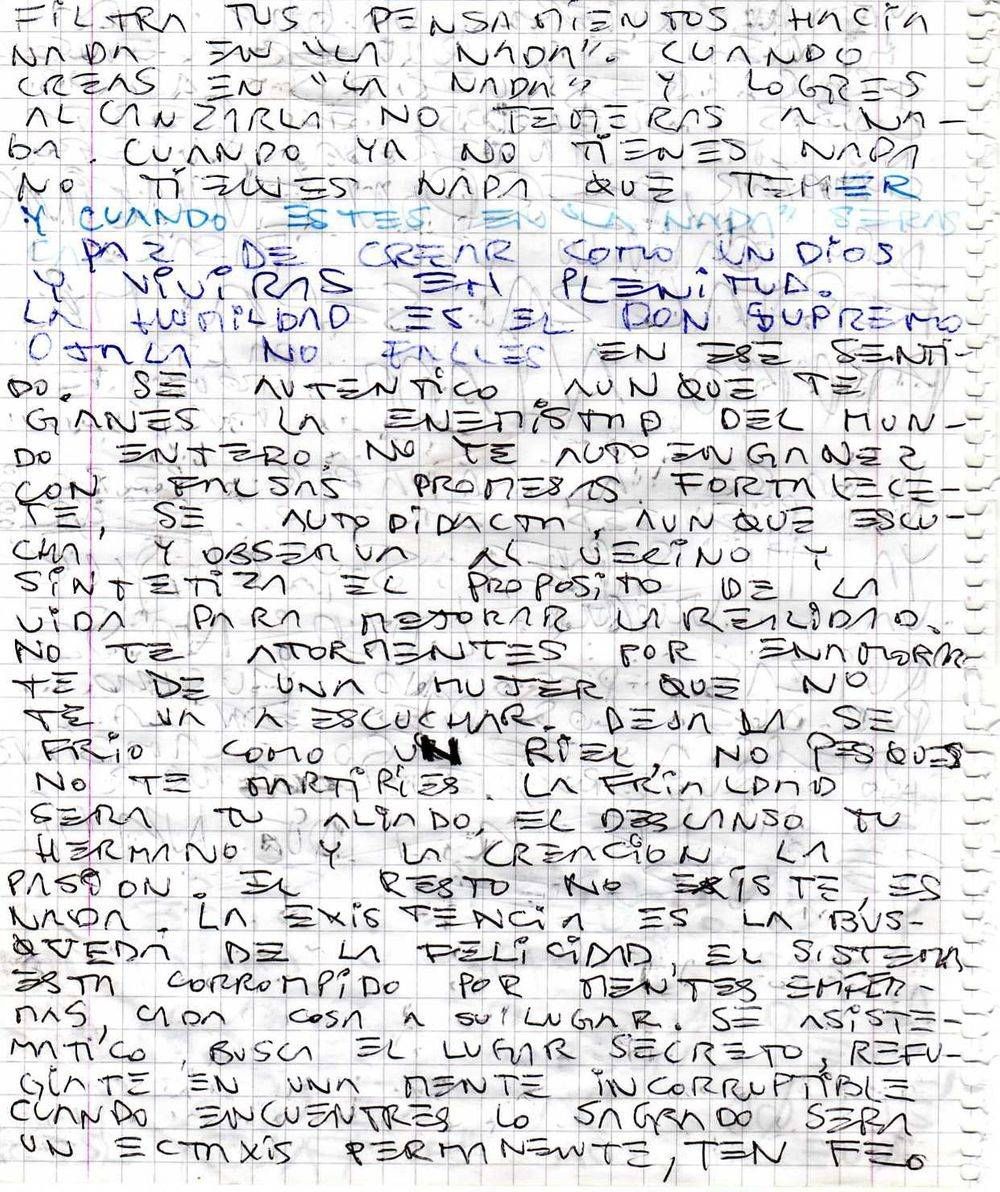 FILTRA TUS PENSAMIENTOS HACIA
NADA EN "LA NADA". CUANDO
CREAS EN "LA NADA" Y LOGRES
ALCANZARLA NO TEMERAS A NA-
DA. CUANDO YA NO TIENES NADA
NO TIENES NADA QUE TEMER
Y CUANDO ESTES EN "LA NADA" SERAS
CAPAZ DE CREAR COMO UN DIOS
Y VIVIRAS EN PLENITUD.
LA HUMILDAD ES EL DON SUPREMO
OJALA NO FALLES EN ESE SENTI-
DO. SE AUTENTICO AUNQUE TE
GANES LA ENEMISTAD DEL MUN-
DO ENTERO. NO TE AUTO ENGANES
CON FALSAS PROMESAS. FORTALECE-
TE, SE AUTODIDACTA, AUNQUE ESCU-
CHA Y OBSERVA AL VECINO Y
SINTETIZA EL PROPOSITO DE LA
VIDA PARA MEJORAR LA REALIDAD.
NO TE ATORMENTES POR ENAMORAR-
TE DE UNA MUJER QUE NO
TE VA A ESCUCHAR. DEJALA SE
FRIO COMO UN RIEL, NO PEQUES
NO TE MARTIRIES. LA FRIALDAD
SERA TU ALIADO, EL DESCANSO TU
HERMANO Y LA CREACION LA
PASION. EL RESTO NO EXISTE, ES
NADA. LA EXISTENCIA ES LA BUS-
QUEDA DE LA FELICIDAD, EL SISTEMA
ESTA CORROMPIDO POR MENTES ENFER-
MAS, CADA COSA A SU LUGAR. SE ASISTE-
MATICO, BUSCA EL LUGAR SECRETO, REFU-
GIATE EN UNA MENTE INCORRUPTIBLE
CUANDO ENCUENTRES LO SAGRADO SERA
UN ECTAXIS PERMANENTE, TEN FE.